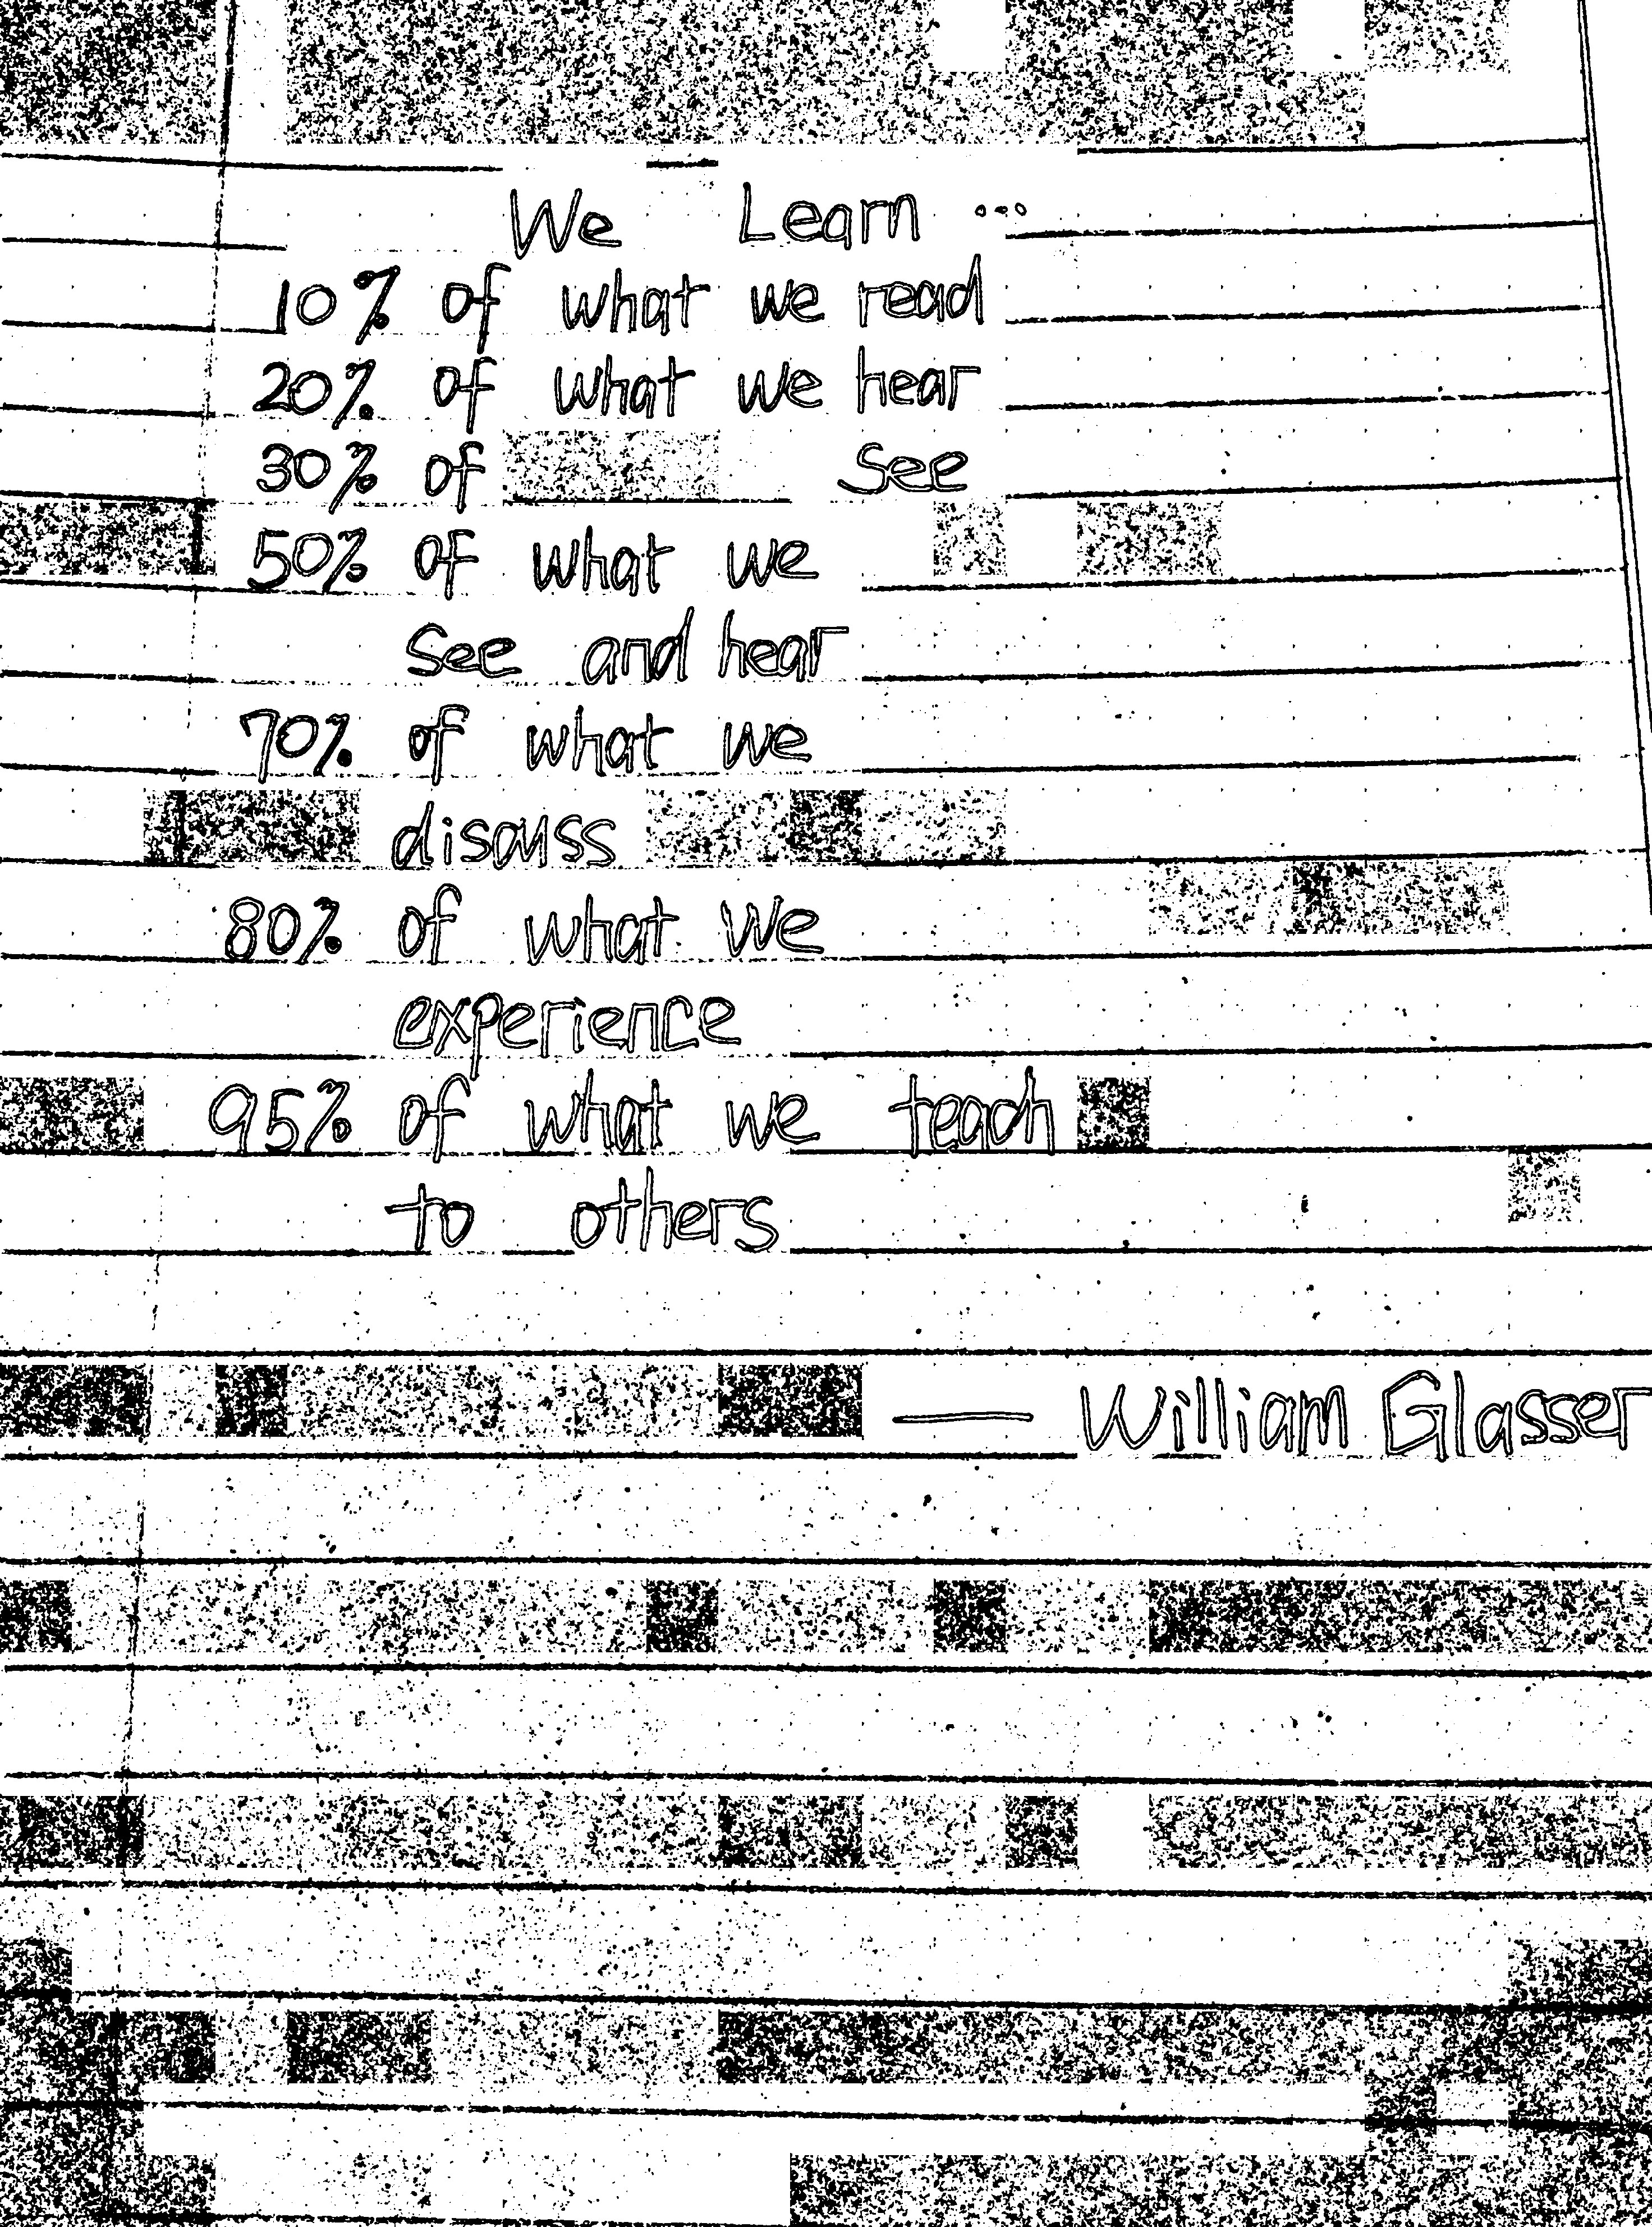 We Learn ...
10% of what we read
20% of what we hear
30% of see
50% of what we
see and hear
70% of what we
discuss
80% of what we
experience
95% of what we teach
to others
— William Glasser